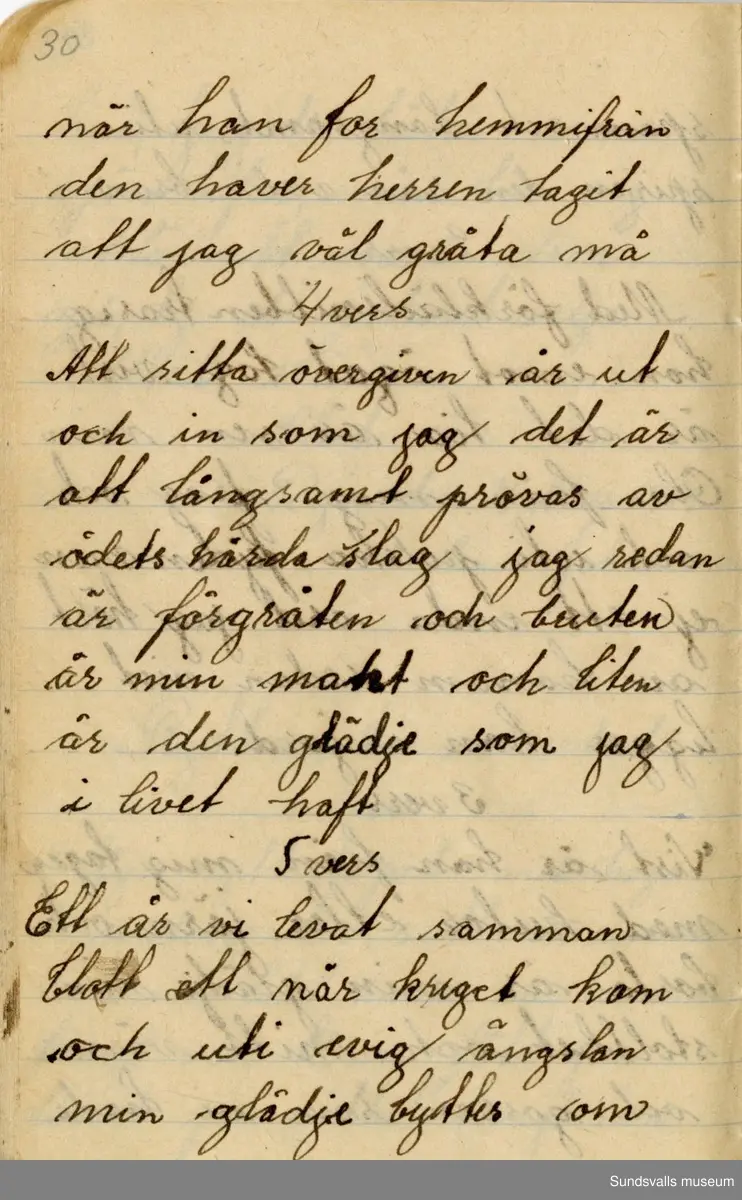 30
när han for hemmifrån
den haver herren tagit
att jag väl gråta må
4 vers
Att sitta övergiven år ut
och in som jag det är
att långsamt prövas av
ödets hårda slag jag redan
är förgråten och bruten
är min makt och liten
är den glädje som jag
i livet haft
5 vers
Ett år vi levat samman
blott ett när kriget kom
och uti evig ängslan
min glädje byttes om
Sundsvalls museum